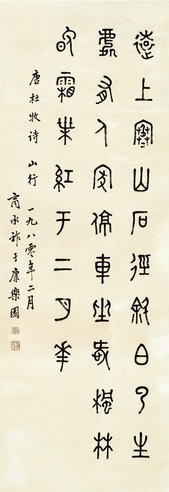 遠上寒山石徑斜白云生
處有人家停車坐愛楓林
晚霜葉紅于二月華
唐杜牧诗 山行 一九八零年二月
商承祚于康樂園